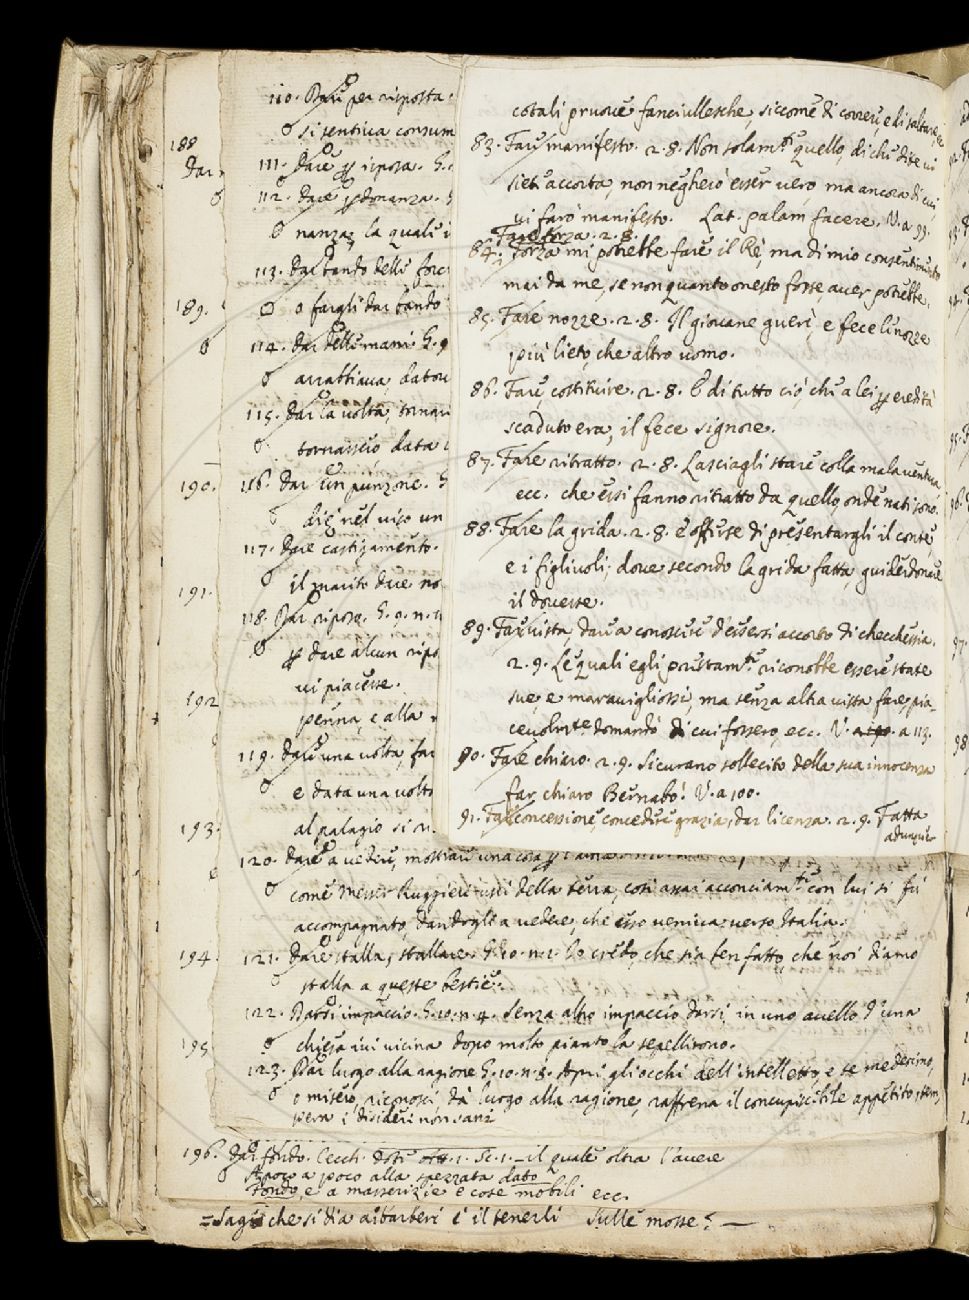 cotali pruove fanciullesche, siccome di correre, e di saltare, ec.
83. Fare manifesto. 2. 8. Non solam.te quello di che dite vi
siete accorta, non negherò esser vero, ma ancora di cui,
vi farò manifesto. Lat. palam facere. V. a 99.
Fare forza. 2. 8.
84. Forza mi potrebbe fare il Rè, ma di mio consentimento
mai da me, se non quanto onesto fosse, aver potrebbe.
85. Fare nozze. 2. 8. Il giovane guerì, e fece le nozze
più lieto, che altro uomo.
86. Fare, costituire. 2. 8. E di tutto ciò, che a lei p eredità
scaduto era, il fece signore.
87. Fare ritratto. 2. 8. Lasciagli stare colla mala ventura
ecc. che essi fanno ritratto da quello onde nati sono.
88. Fare la grida. 2. 8. e offerse di presentargli il conte,
e i figlivoli; dove secondo la grida fatta, guiderdonare
il dovesse.
89. Far vista, dare a conoscere d'essersi accorto di checchessia.
2. 9. Le quali egli prestam.te riconobbe essere state
sue, e maravigliossi, ma senza altra vista fare, pia-
cevolm.te domandò di cui fossero, ecc. V. a 113.
90. Fare chiaro. 2. 9. Sicurano sollecito della sua innocenza
far chiaro Bernabò. V. a 100.
91. Far concessione, concedere grazia, dar licenza. 2. 9. Fatta
adunque
110. Dare per risposta
si sentiva consum
188
Dar
111. Dare p isposa. G.
112. dare p donanza.
nanza, la quale i
113. dar bando delle forc
189.
o fargli dar bando
114. dar delle mani G. 9
arrabbiava datou
115. dar la volta, tornar
tornassero data
190.
116. dar un punzone. G
diè nel viso un
117. dare castigamento.
il marito dare no
191.
118. Dar riposo. G. 9. n.
p dare alcun ripo
vi piacesse.
192
penna, e alla
119. dare una volta, far
e data una volta
193.
al palagio si
120. dare a vedere, mostrare una cosa p
come Messer Ruggieri uscì della terra, così assai acconciam.te con lui si fù
accompagnato, dandogli a vedere, che esso veniva verso Italia.
194.
121. Dare stalla, stallare. G. 10. n. 1. Io credo, che sia ben fatto, che noi diamo
stalla a queste bestie.
122. Darsi impaccio. G. 10. n. 4. Senza altro impaccio darsi, in uno avello d'una
195
chiesa ivi vicina dopo molto pianto la sepellirono.
123. Dar luogo alla ragione G. 10. n. 8. Apri gli occhi dell'intelletto, e te medesimo,
o misero, riconosci, dà luogo alla ragione, raffrena il concupiscibile appetito, tem-
pera i disideri non sani
196. dar fondo. Cecch. 1. Sc. 1. - il quale oltra l'avere
A poco a poco alla spezzata dato
Fondo, e a masserizie e cose mobili ecc.
= Sagù che si dia a' barberi e il tenerli sulle mosse? —